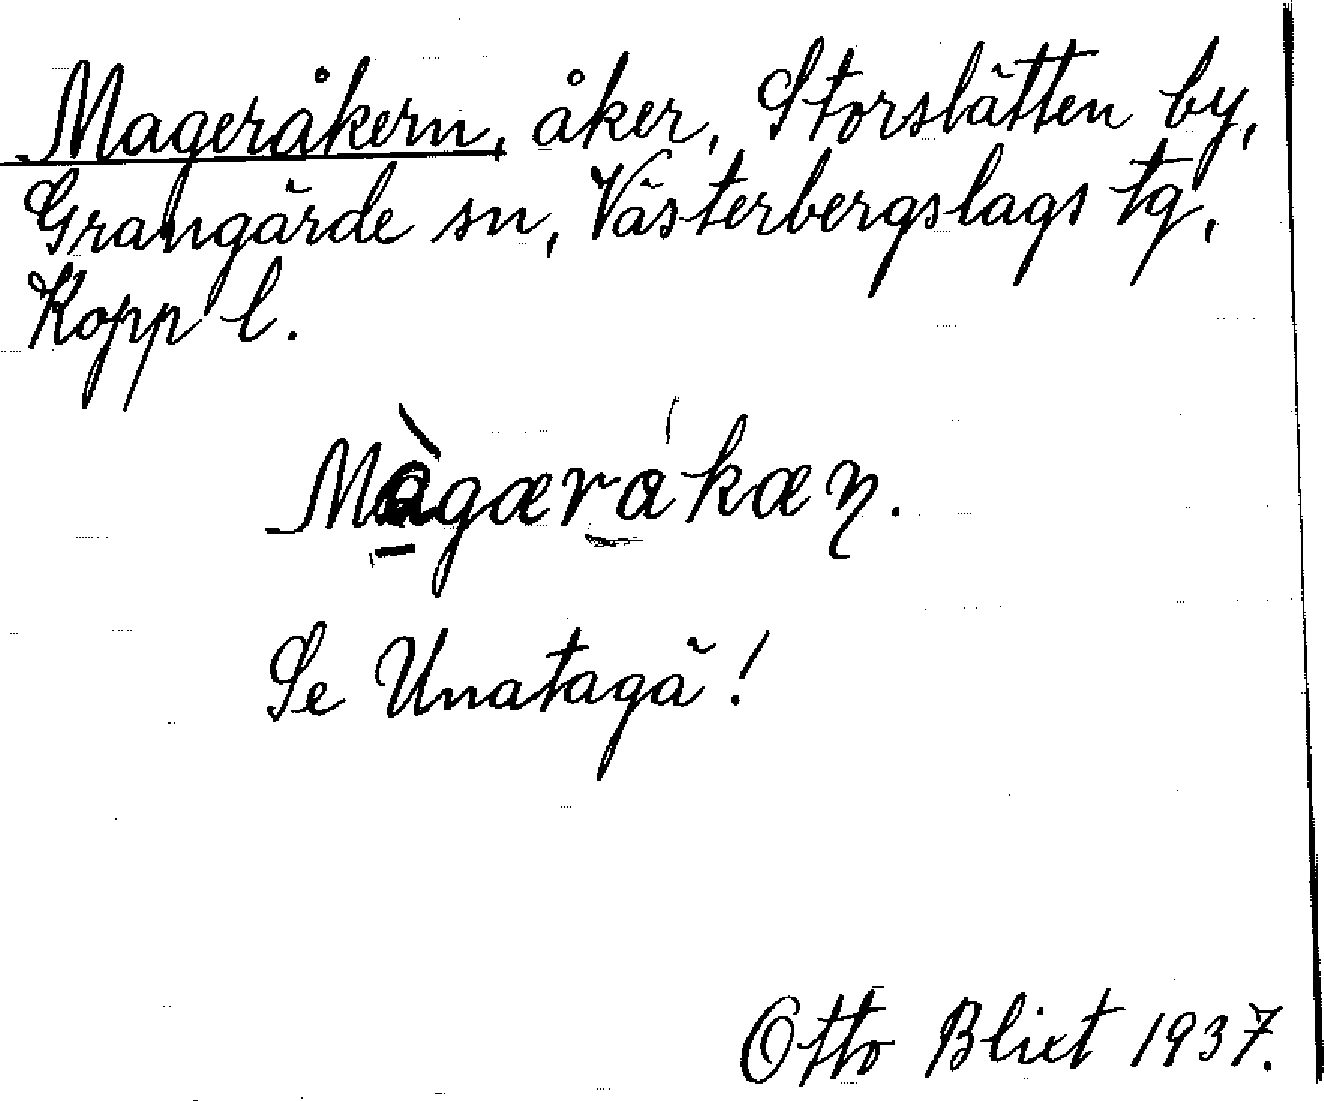 Mageråkern, åker, Storslätten by,
Grangärde sn, Västerbergslags tg,
Kopp l.
Màgæråkæŋ.
Se Unatagä!
Otto Blixt 1937.